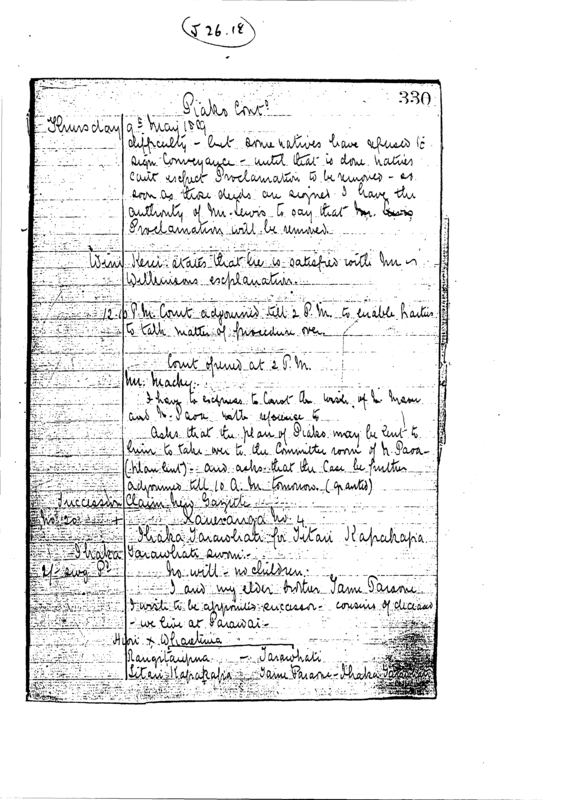 J 26.18
330
Piako Contd
Thursday 9th May 1889
difficulty - but some natives have refused to
sign Conveyance - until that is done natives
can't expect Proclamation to be removed - as
soon as these deeds are signed I have the
authority of Mr. Lewis to say that
Proclamation will be removed
Wini Kerei states that he is satisfied with Mr
Wilkinsons explanation.
12.10 P.M. Court adjourned till 2 P.M. to enable parties
to talk matter of procedure over
Court opened at 2 P.M.
Mr. Mackay.
I have to express to Court the wish of
and N. Paoa with reference to
Asks that the plan of Piako may be lent to
him to take over to the Committee room of N. Paoa -
(Plan lent) - and asks that the Case be further
adjourned till 10 A.M. tomorrow. (granted)
Succession Claim New Gazette
No. 20 + No. 4
Ihaka Tarawhati for Titari Kapakapa
Ihaka Tarawhati sworn -
2/- swg Pd No will - no children.
I and my elder brother Tame Paraone
I wish to be appointed successor - cousins of deceased
- we live at Parawai -
x
- Tarawhati
Titari Kapakapa Tame Paraone - Ihaka Tarawhati